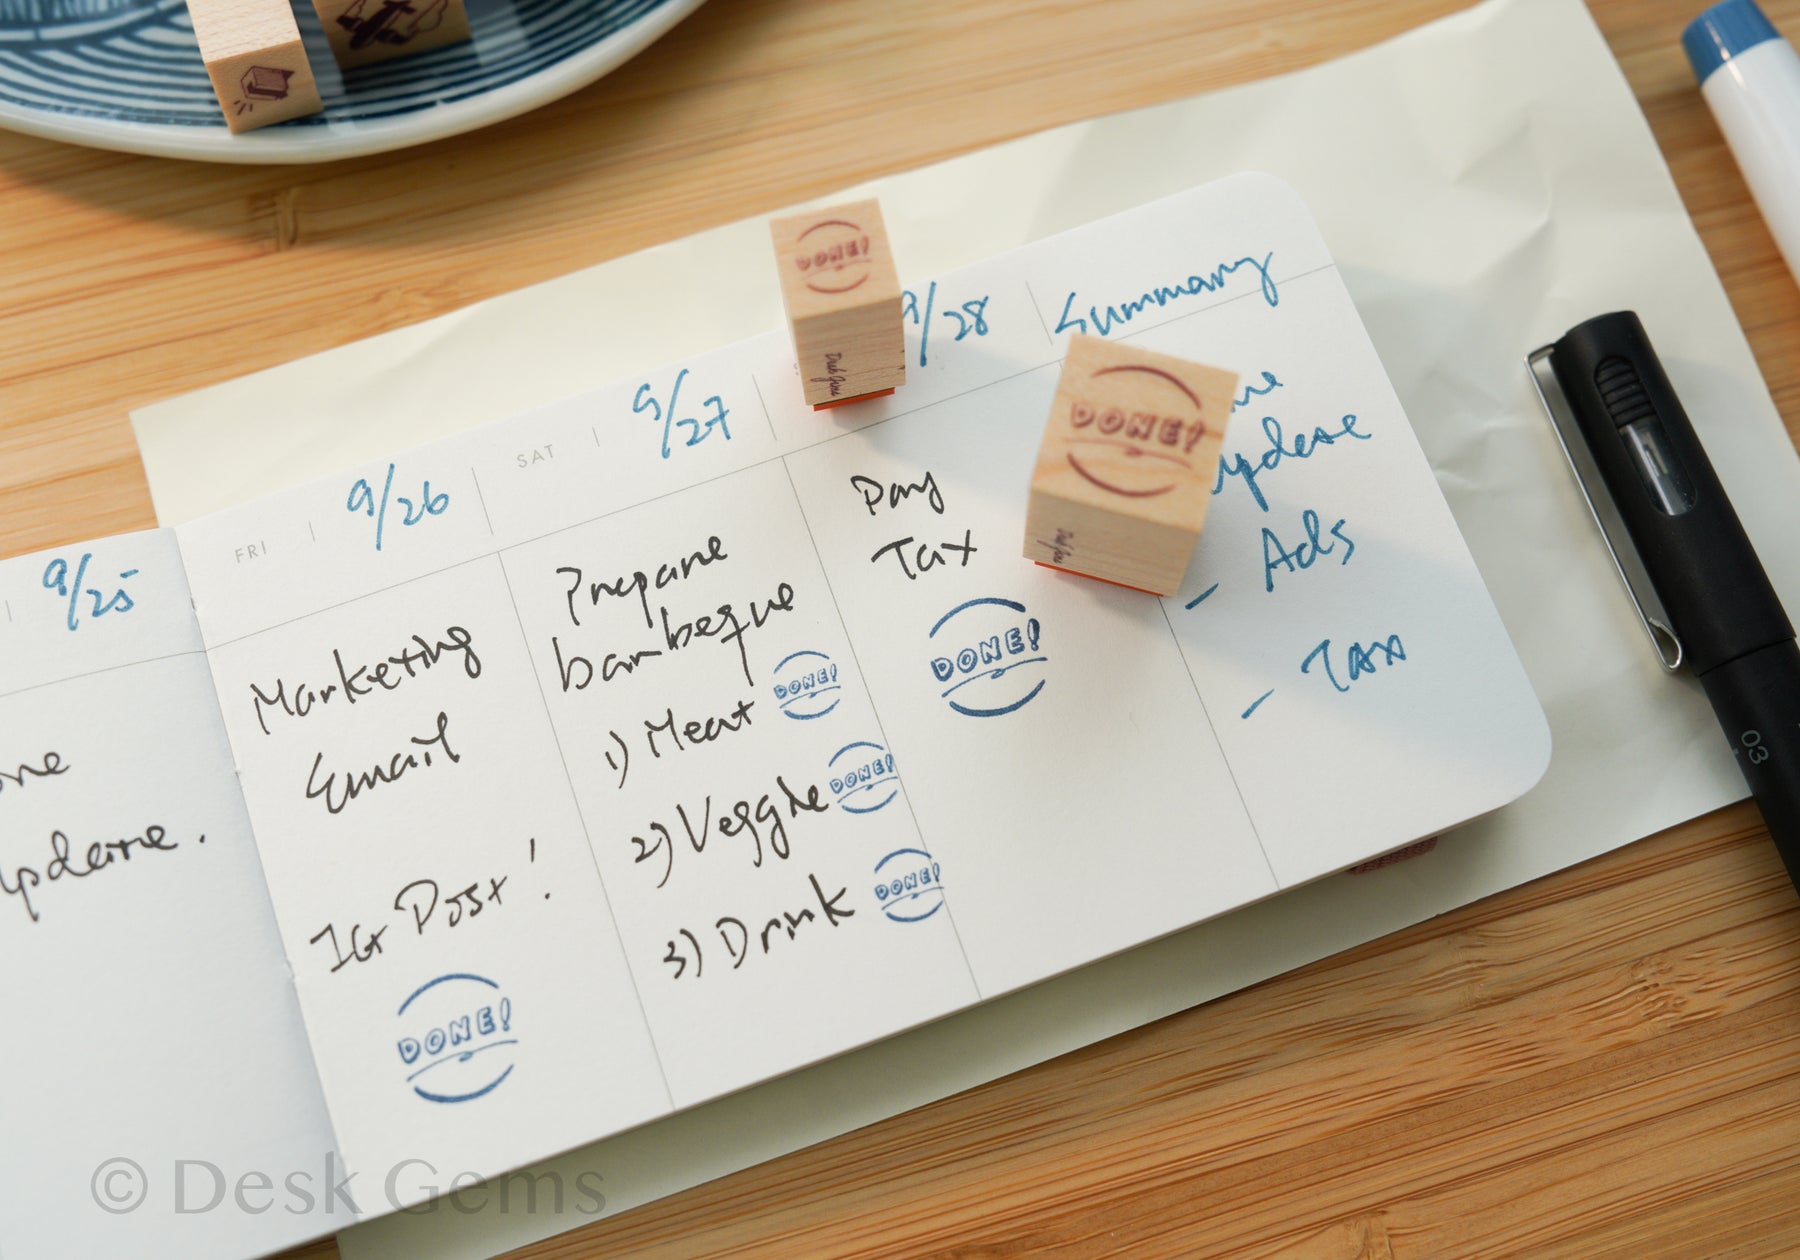 DONE!
Desk Gems
9/28
Summary
DONE!
9/27
SAT
9/26
FRI
9/25
update
- Ads
- Tax
Pay
Tax
DONE!
Prepare
barbeque
1) Meat DONE!
2) Veggie DONE!
3) Drink DONE!
Marketing
Email
IG Post!
DONE!
update.
03
© Desk Gems